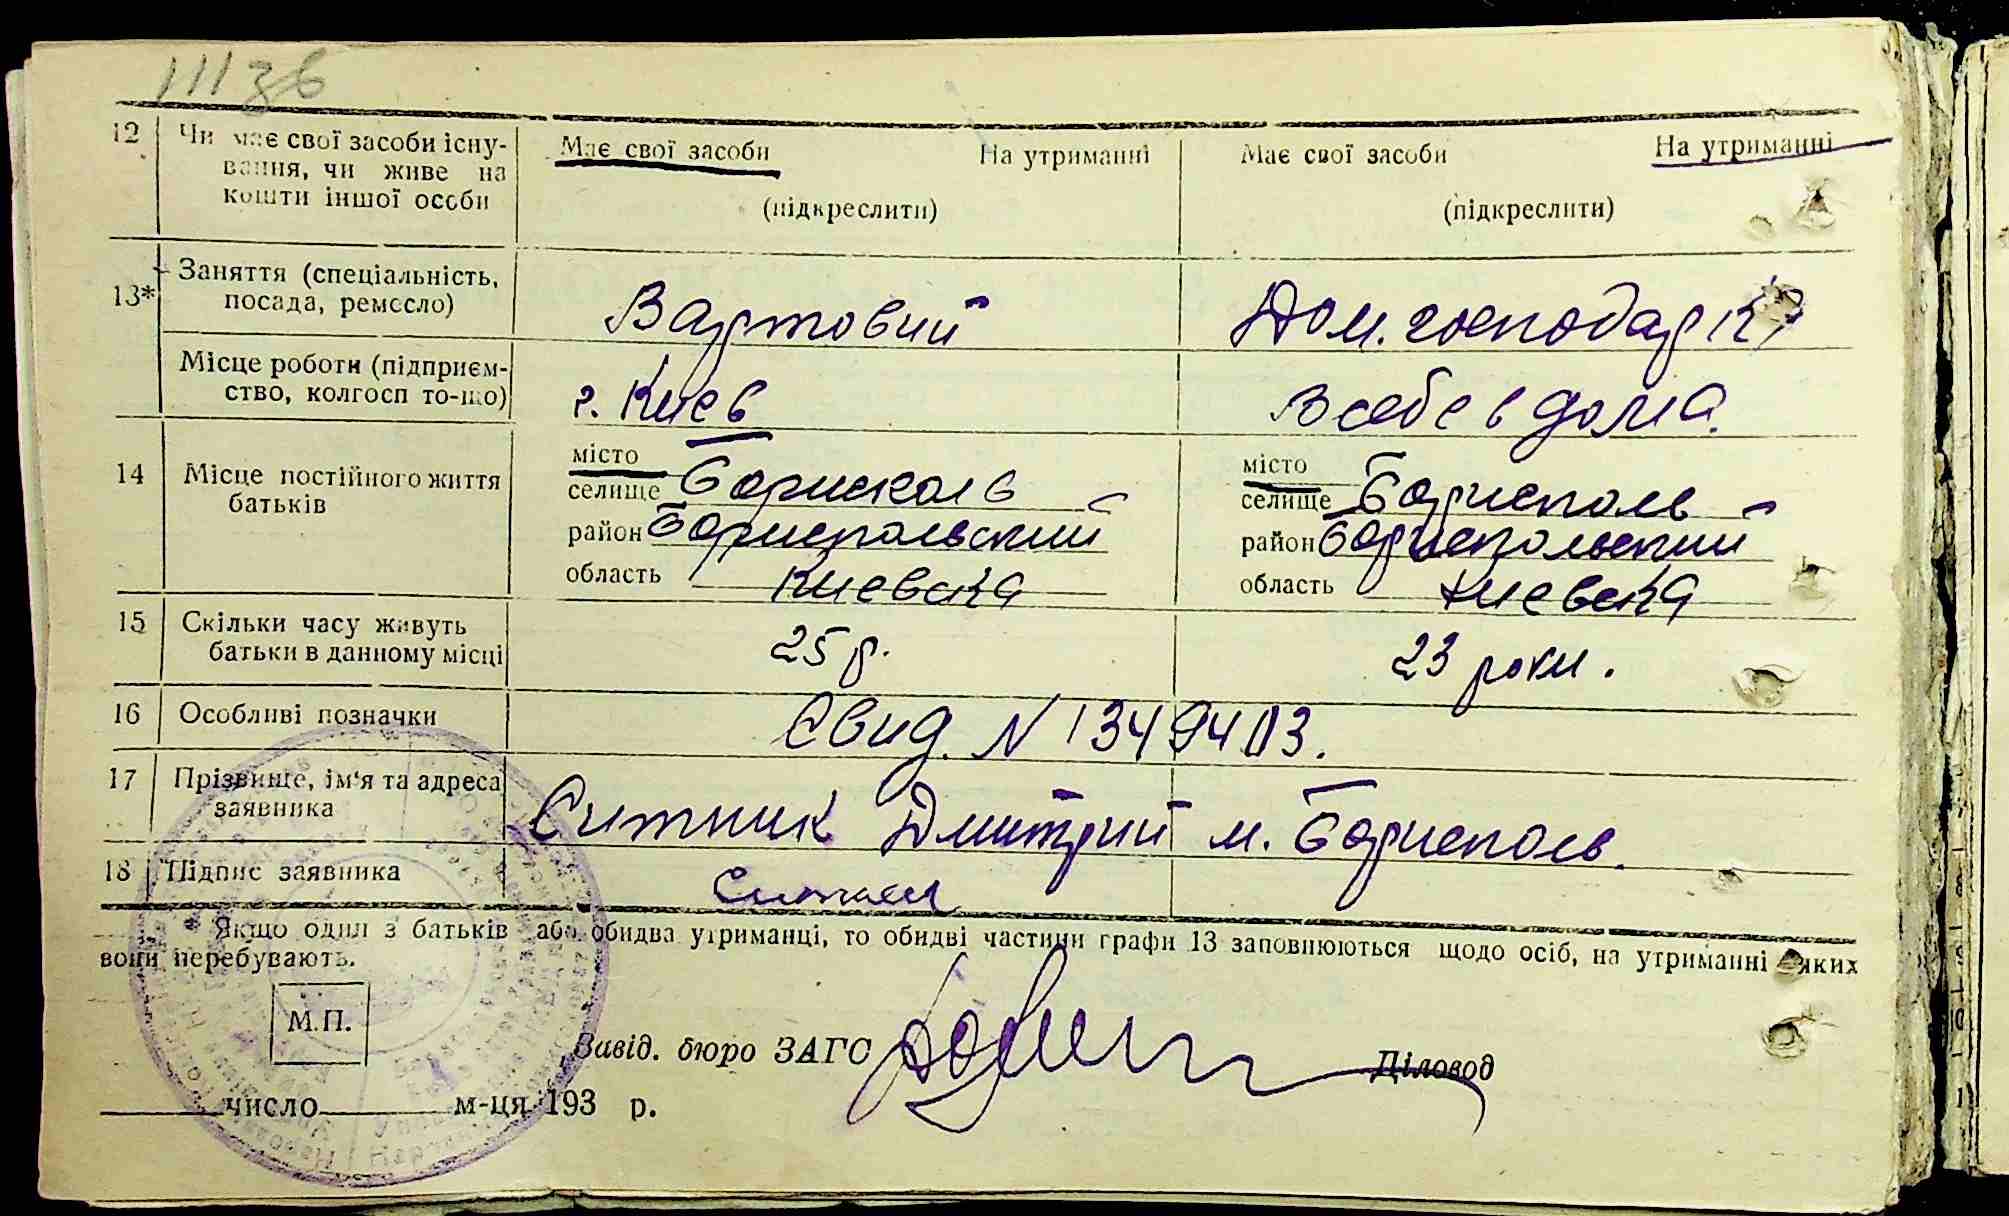 12 Чи має свої засоби існу- Має свої засоби На утриманні Має свої засоби На утриманні
вання, чи живе на
кошти іншої особи (підкреслити) (підкреслити)
13* Заняття (спеціальність,
посада, ремесло) Вартовий Дом. господарка
Місце роботи (підприєм-
ство, колгосп то-що) г. Киев в себе в дома.
14 Місце постійного життя місто місто
батьків селище Борисполь селище Борисполь
район Бориспольский район Бориспольский
область Киевска область Киевска
15 Скільки часу живуть
батьки в данному місці 25 р. 23 роки.
16 Особливі позначки Свид. N 1349403.
17 Прізвище, ім'я та адреса
заявника Ситник Дмитрий м. Борисполь.
18 Підпис заявника Ситник
* Якщо один з батьків або обидва утриманці, то обидві частини графи 13 заповнюються щодо осіб, на утриманні яких
вони перебувають.
М.П.
Завід. бюро ЗАГС Діловод
число м-ця 193 р.